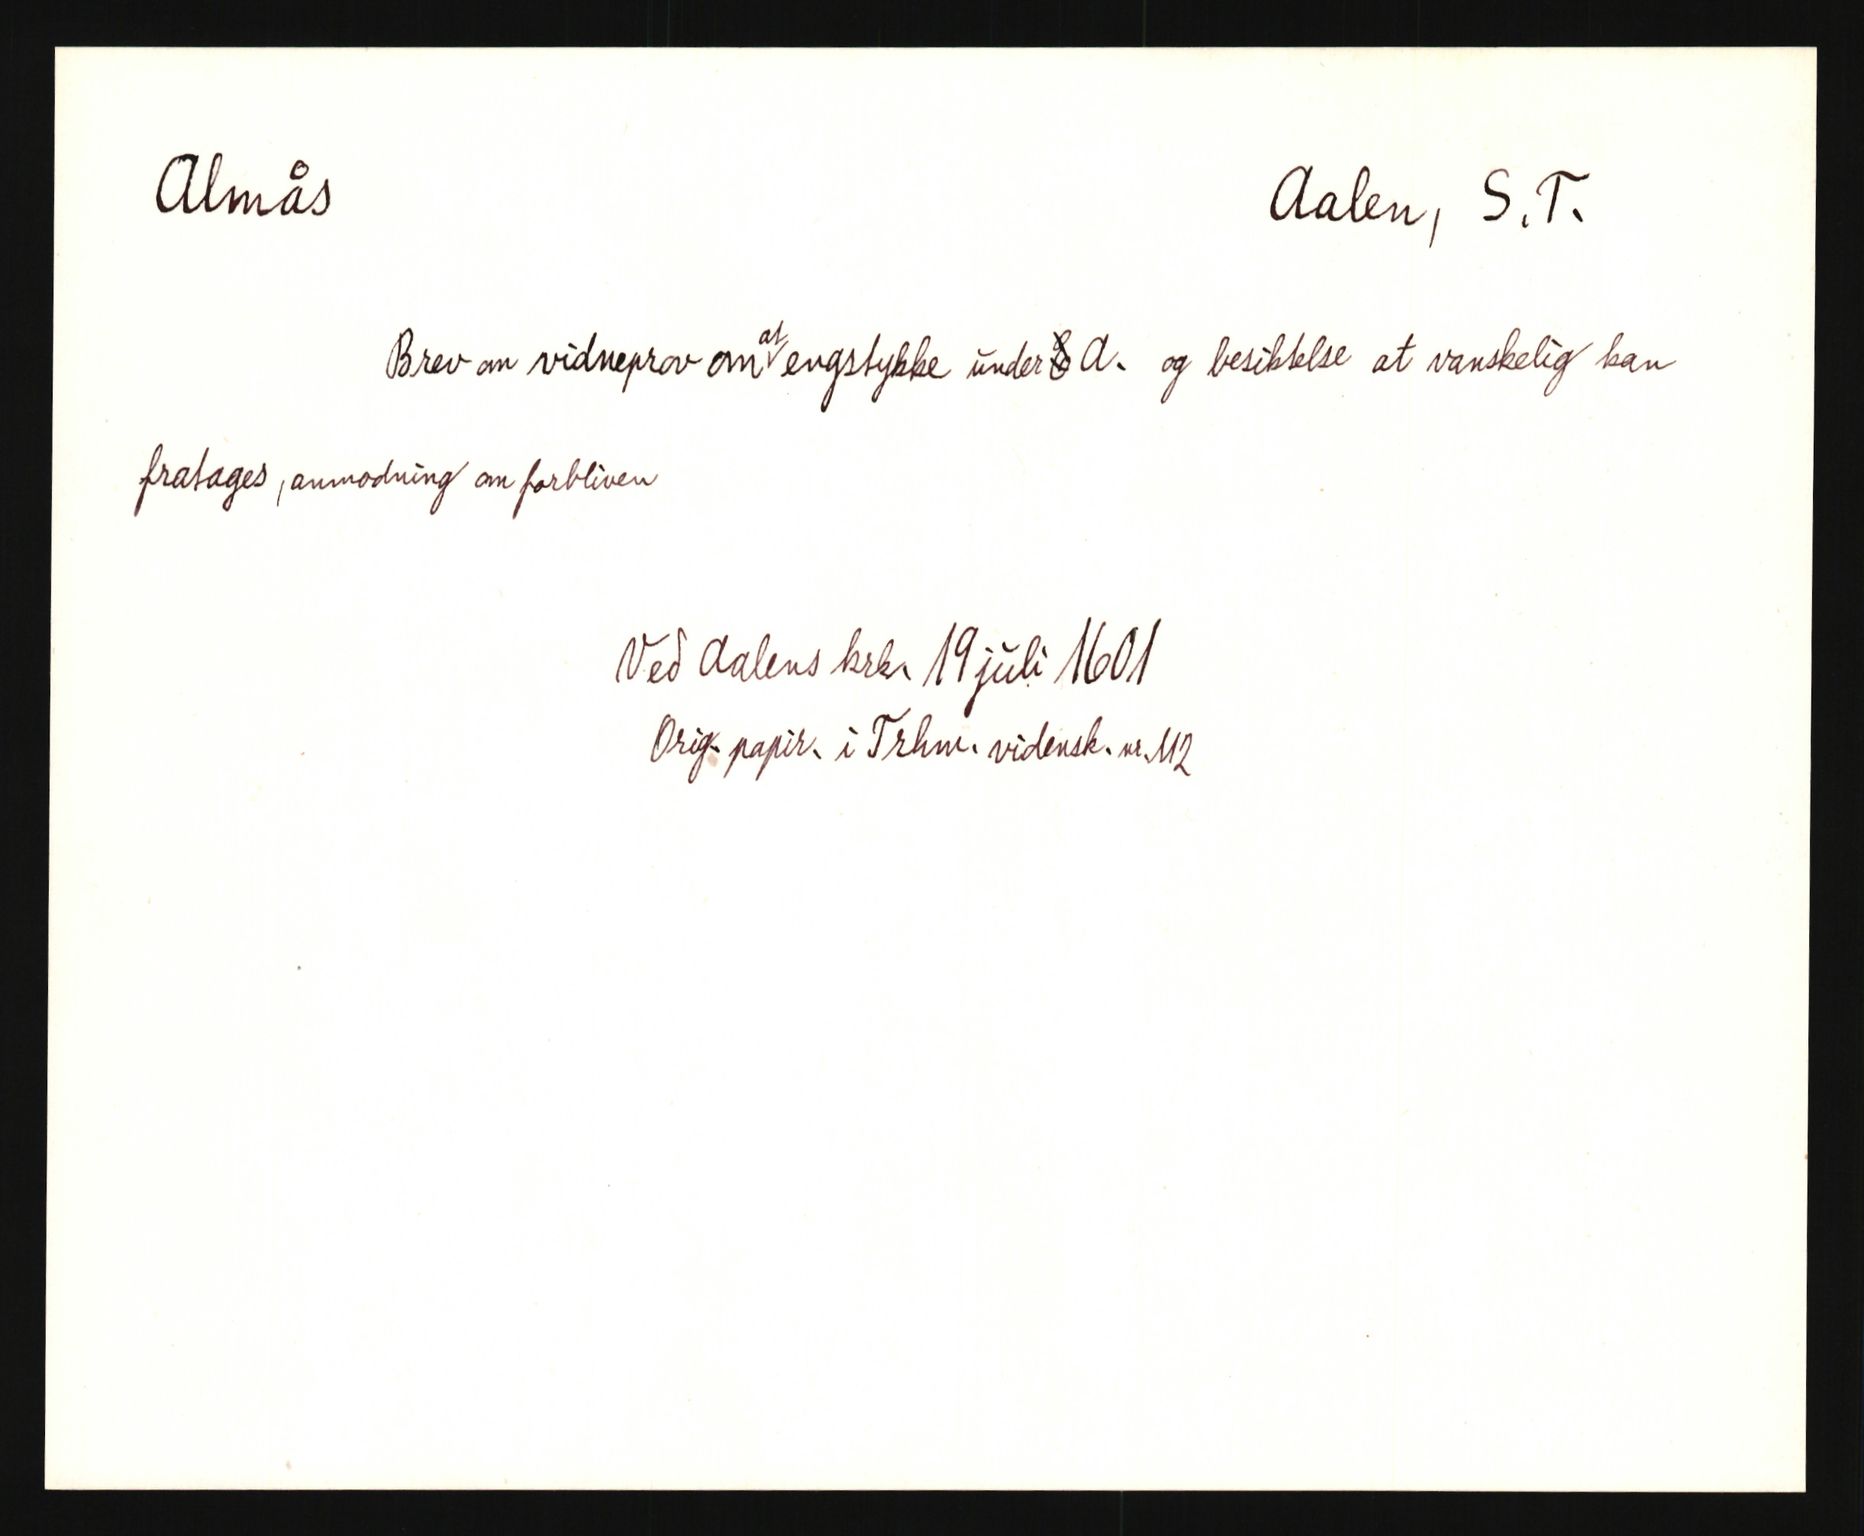 Almås Aalen, S.T.
Brev om vidneprov om at engstykke under A. og besiktelse at vanskelig kan
fratages, anmodning om forbliven
Ved Aalens krk. 19 juli 1601
Orig. papir. i Trhm. vidensk. nr. 112